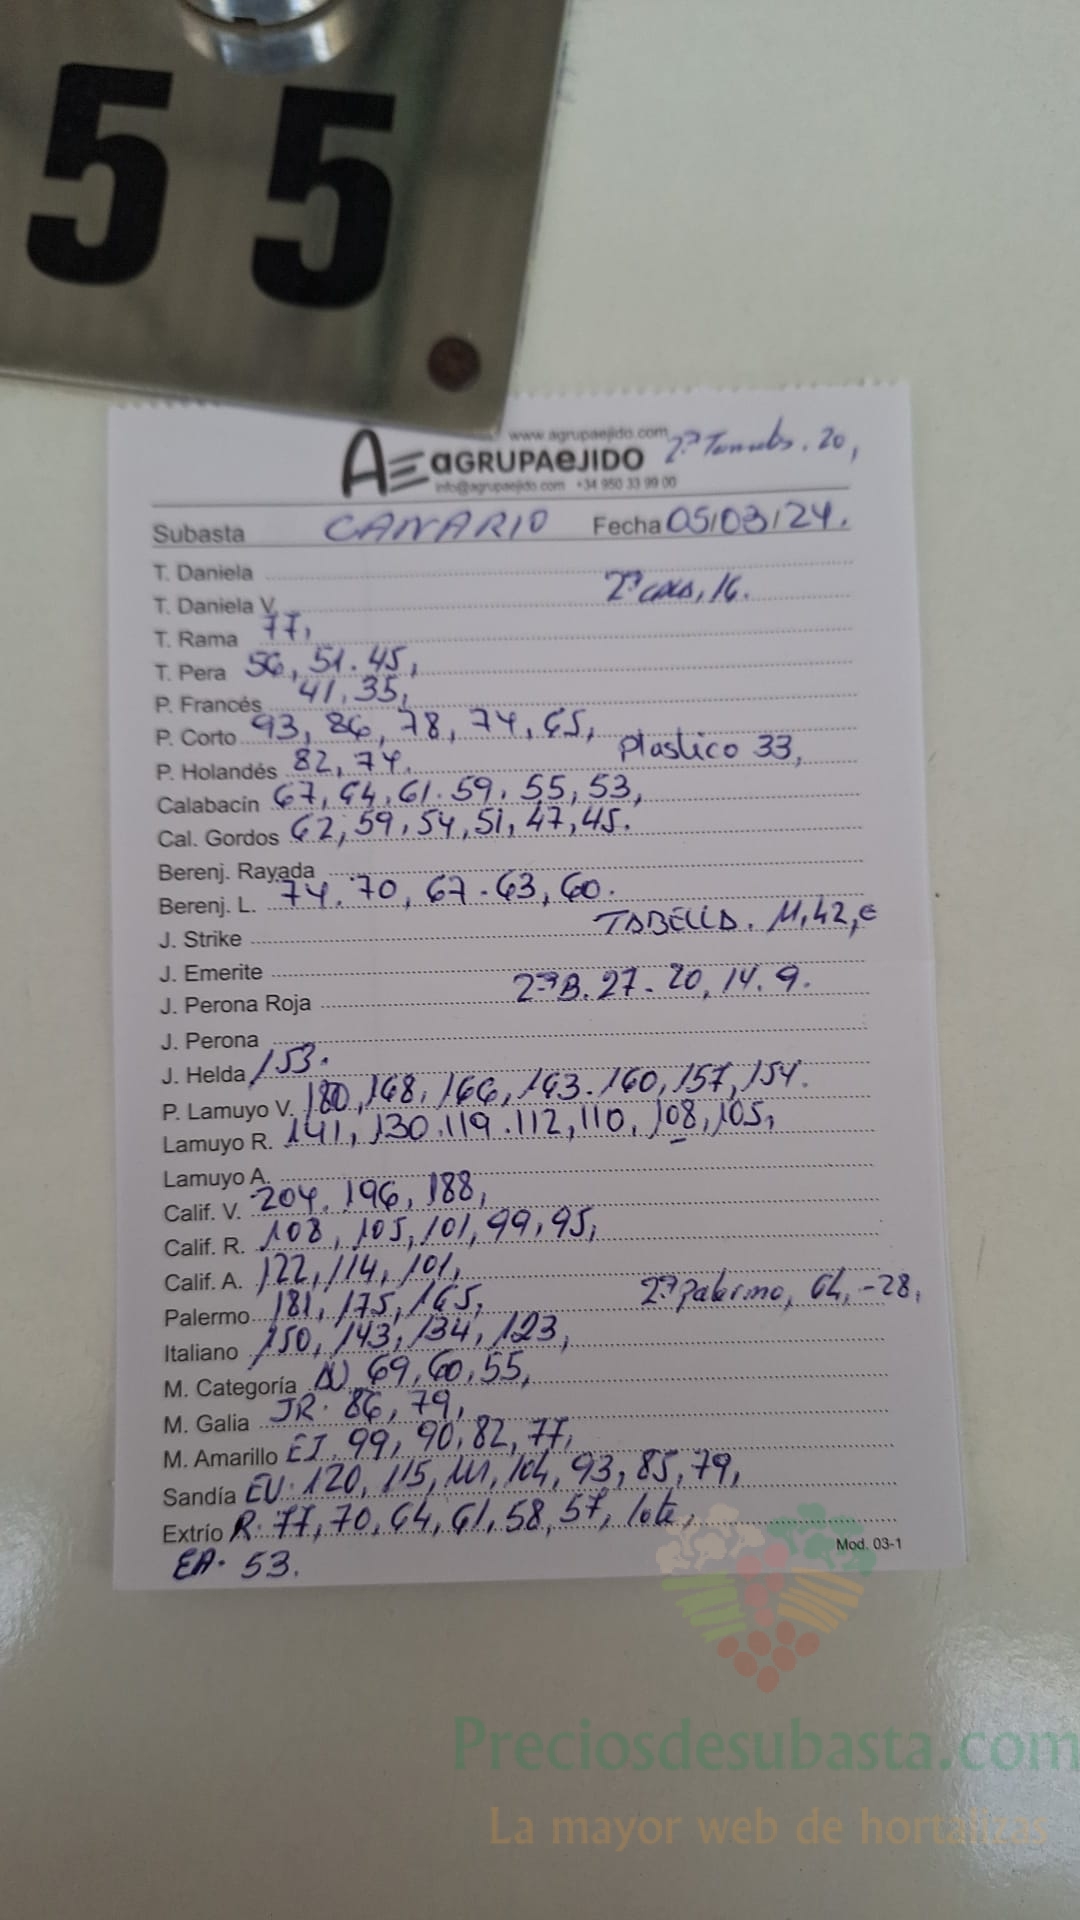 55
www.agrupaejido.com
AGRUPAEJIDO
info@agrupaejido.com +34 950 33 99 00
2ª . 20,
Subasta CANARIO Fecha 05/03/24.
T. Daniela
2ª 16.
T. Daniela V.
T. Rama 77,
T. Pera 56, 51. 45,
P. Francés 41, 35,
P. Corto 93, 86, 78, 74, 65,
Plastico 33,
P. Holandés 82, 74.
Calabacín 67, 64, 61. 59. 55, 53,
Cal. Gordos 62, 59, 54, 51, 47, 45.
Berenj. Rayada
Berenj. L. 74. 70, 67. 63, 60.
TABELLA. 42, E
J. Strike
J. Emerite
2ªB. 27- 20, 14. 9.
J. Perona Roja
J. Perona
J. Helda 153.
P. Lamuyo V. 180, 168, 166, 163. 160, 157, 154.
Lamuyo R. 141, 130. 119. 112, 110, 108, 105,
Lamuyo A.
Calif. V. 204. 196, 188,
Calif. R. 108, 105, 101, 99, 95,
Calif. A. 122, 114, 101,
2ª Palermo, 64, -28,
Palermo 181, 175, 165,
Italiano 150, 143, 134, 123,
M. Categoría 69, 60, 55,
M. Galia JR. 86, 79,
M. Amarillo EJ. 99, 90, 82, 77,
Sandía EU. 120, 115, 111, 104, 93, 85, 79,
Extrío R. 77, 70, 64, 61, 58, 57, lote,
EA. 53.
Mod. 03-1
Preciosdesubasta.com
La mayor web de hortalizas